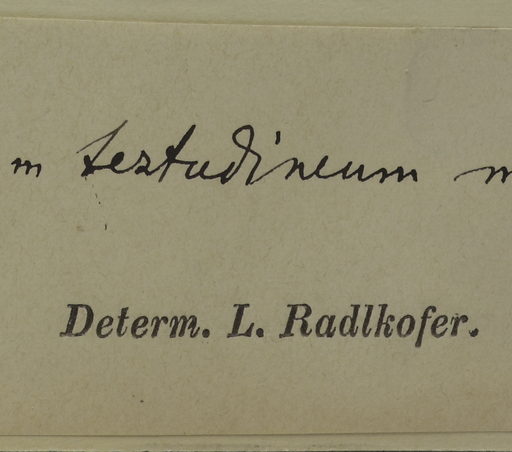 m testudineum m
Determ. L. Radlkofer.